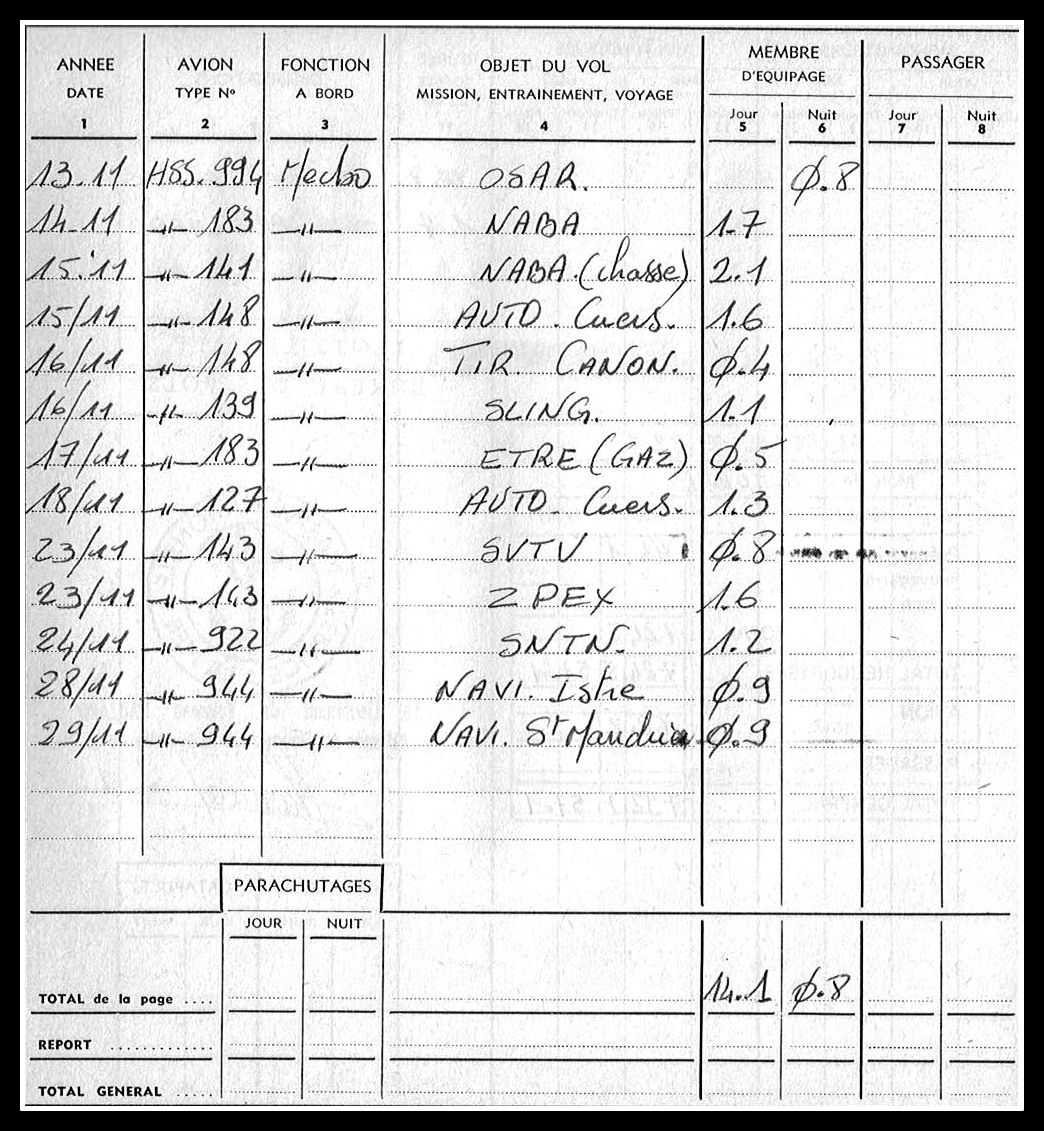 ANNEE AVION FONCTION OBJET DU VOL MEMBRE D'EQUIPAGE PASSAGER
DATE TYPE N° A BORD MISSION, ENTRAINEMENT, VOYAGE Jour Nuit Jour Nuit
1 2 3 4 5 6 7 8
13.11 HSS. 994 Mecbo OSAR. Ø.8
14.11 -"- 183 -"- NABA 1.7
15.11 -"- 141 -"- NABA.(chasse) 2.1
15/11 -"- 148 -"- AUTO. Cuers. 1.6
16/11 -"- 148 -"- TIR. CANON. Ø.4
16/11 -"- 139 -"- SLING. 1.1
17/11 -"- 183 -"- ETRE (GAZ) Ø.5
18/11 -"- 127 -"- AUTO. Cuers. 1.3
23/11 -"- 143 -"- SVTV Ø.8
23/11 -"- 143 -"- ZPEX 1.6
24/11 -"- 922 -"- SNTN. 1.2
28/11 -"- 944 -"- NAVI. Istre Ø.9
29/11 -"- 944 -"- NAVI. St Mandrier Ø.9
PARACHUTAGES
JOUR NUIT
TOTAL de la page .... 14.1 Ø.8
REPORT .............
TOTAL GENERAL .....